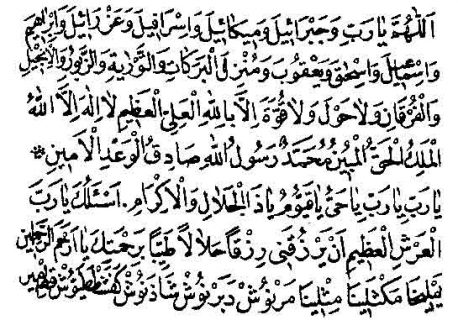 اَللّٰهُمَّ يَارَبِّ وَجَبْرَائِيلَ وَمِيكَائِيلَ وَاِسْرَافِيلَ وَعَزْرَائِيلَ وَاِبْرَاهِيمَ
وَاِسْمَاعِيلَ وَاِسْحٰقَ وَيَعْقُوبَ وَمُنْزِلَ الْبَرَكَاتِ وَالتَّوْرٰيةِ وَالزَّبُورِ وَالْاِنْجِيلِ
وَالْفُرْقَانِ وَلَاحَوْلَ وَلَاقُوَّةَ اِلَّا بِاللهِ الْعَلِيِّ الْعَظِيمِ لَا اِلٰهَ اِلَّا اللهُ
الْمَلِكُ الْحَقُّ الْمُبِينُ مُحَمَّدٌ رَسُولُ اللهِ صَادِقُ الْوَعْدِ الْاَمِينِ *
يَارَبِّ يَارَبِّ يَاحَىُّ يَاقَيُّومُ يَاذَا الْجَلَالِ وَالْاِكْرَامِ. اَسْئَلُكَ يَارَبَّ
الْعَرْشِ الْعَظِيمِ اَنْ يَرْزُقَنِى رِزْقًا حَلَالًا طَيِّبًا بِرَحْمَتِكَ يَا اَرْحَمَ الرَّاحِمِينَ
يَمْلِيخَا مَكْثَلِينَا مِثْلِينَا مَرْنُوشْ دَبَرْنُوشْ شَاذَنُوشْ كَفَشْطَطَيُوشْ قِطْمِيرْ